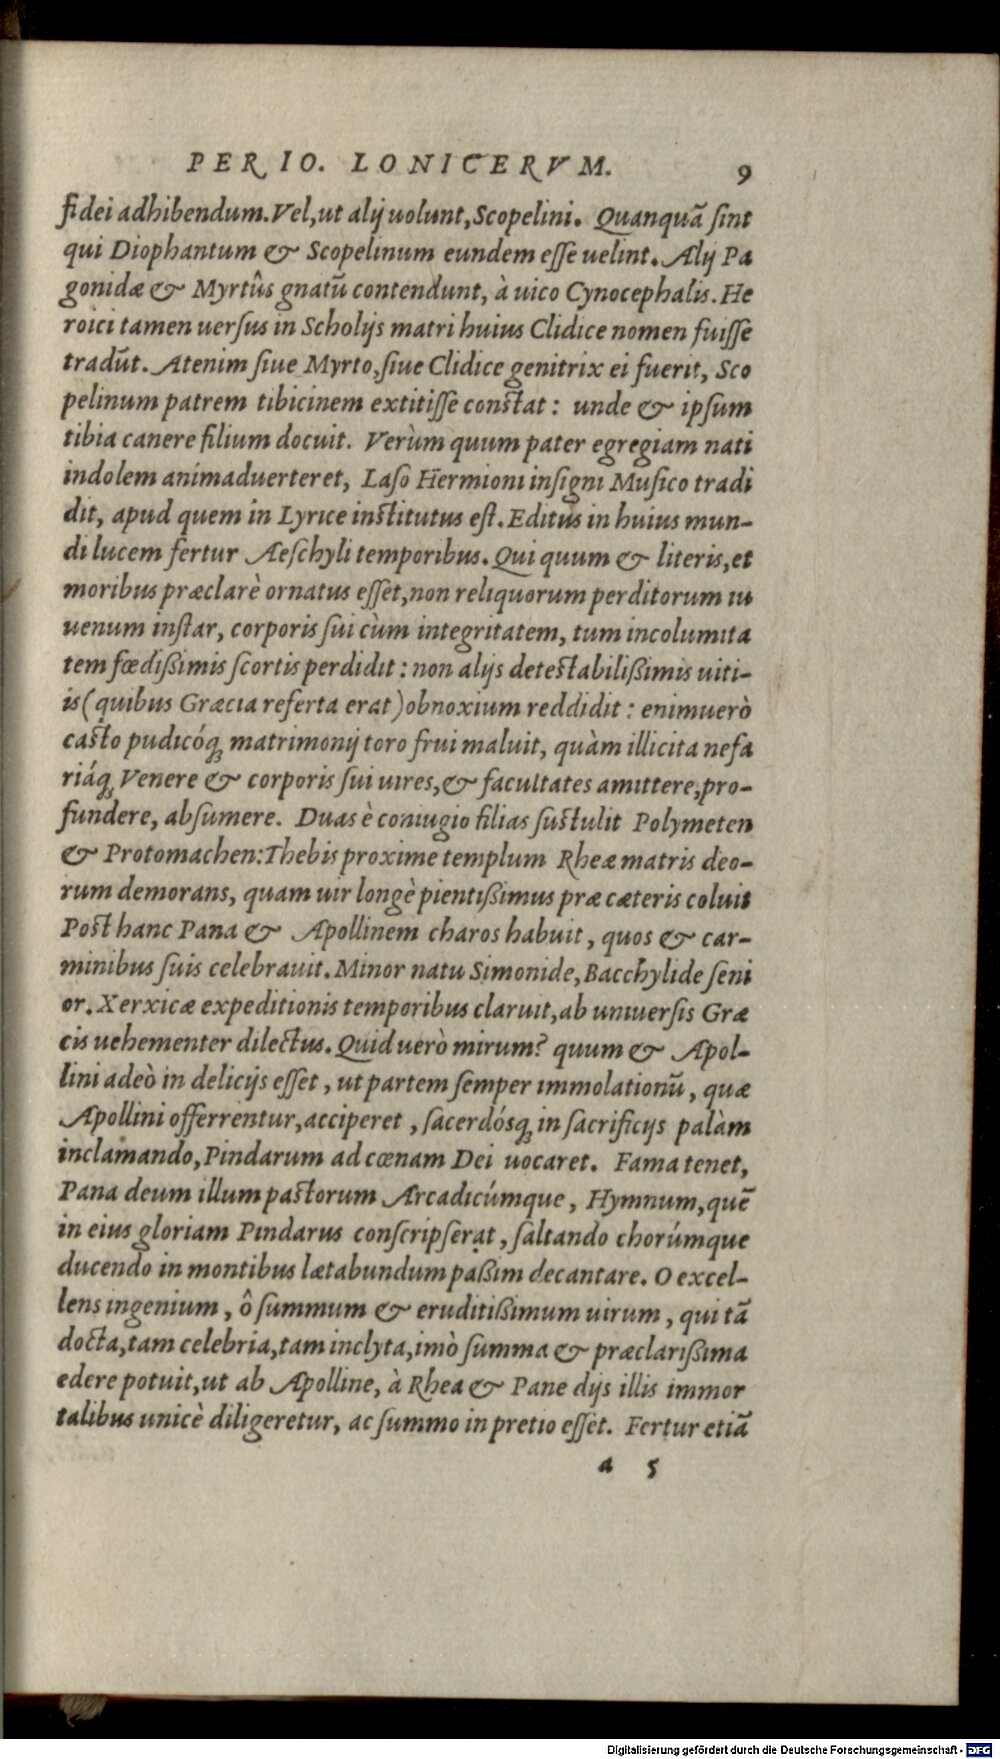 PER IO. LONICERVM. 9
fidei adhibendum. Vel, ut alij uolunt, Scopelini. Quanquā ſint
qui Diophantum & Scopelinum eundem eſſe uelint. Alij Pa
gonidæ & Myrtûs gnatū contendunt, à uico Cynocephalis. He
roici tamen uerſus in Scholijs matri huius Clidice nomen fuiſſe
tradūt. Atenim ſiue Myrto, ſiue Clidice genitrix ei fuerit, Sco
pelinum patrem tibicinem extitiſſe conſtat: unde & ipſum
tibia canere filium docuit. Verùm quum pater egregiam nati
indolem animaduerteret, Laſo Hermioni inſigni Muſico tradi
dit, apud quem in Lyrice inſtitutus eſt. Editus in huius mun-
di lucem fertur Aeſchyli temporibus. Qui quum & literis, et
moribus præclarè ornatus eſſet, non reliquorum perditorum iu
uenum inſtar, corporis ſui cùm integritatem, tum incolumita
tem fœdißimis ſcortis perdidit: non alijs deteſtabilißimis uiti-
is (quibus Græcia referta erat) obnoxium reddidit: enimuerò
caſto pudicóq̧ matrimonij toro frui maluit, quàm illicita nefa
riáq̧ Venere & corporis ſui uires, & facultates amittere, pro-
fundere, abſumere. Duas è coniugio filias ſuſtulit Polymeten
& Protomachen: Thebis proxime templum Rheæ matris deo-
rum demorans, quam uir longè pientißimus præ cæteris coluit
Poſt hanc Pana & Apollinem charos habuit, quos & car-
minibus ſuis celebrauit. Minor natu Simonide, Bacchylide ſeni
or. Xerxicæ expeditionis temporibus claruit, ab uniuerſis Græ
cis uehementer dilectus. Quid uerò mirum? quum & Apol-
lini adeò in delicijs eſſet, ut partem ſemper immolationū, quæ
Apollini offerrentur, acciperet, ſacerdósq̧ in ſacrificijs palàm
inclamando, Pindarum ad cœnam Dei uocaret. Fama tenet,
Pana deum illum paſtorum Arcadicúmque, Hymnum, quē
in eius gloriam Pindarus conſcripſerat, ſaltando chorúmque
ducendo in montibus lætabundum paßim decantare. O excel-
lens ingenium, ô ſummum & eruditißimum uirum, qui tā
docta, tam celebria, tam inclyta, imò ſumma & præclarißima
edere potuit, ut ab Apolline, à Rhea & Pane dijs illis immor
talibus unicè diligeretur, ac ſummo in pretio eſſet. Fertur etiā
a 5
Digitalisierung gefördert durch die Deutsche Forschungsgemeinschaft - DFG